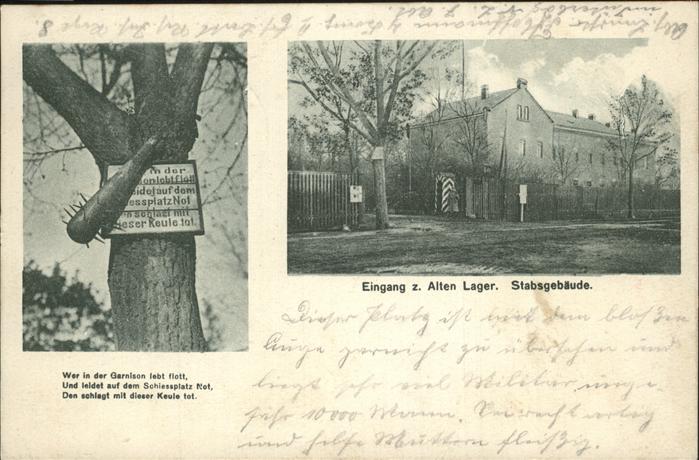 in der
lebt flott
leidet auf dem
iessplatz Not
n schlagt mit
ieser Keule tot.
Eingang z. Alten Lager. Stabsgebäude.
Wer in der Garnison lebt flott,
Und leidet auf dem Schiessplatz Not,
Den schlagt mit dieser Keule tot.
Dieser Platz ist mit dem bloßen
Auge garnicht zu übersehen und
liegt sehr viel Militär, unge-
fähr 10000 Mann. Sei recht artig
und helfe Muttern fleißig.